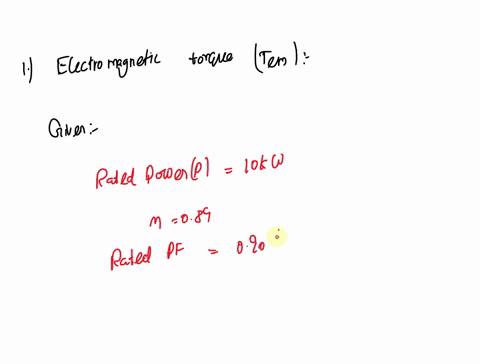 1.) Electromagnetic torque (Tem):-
Given:-
Rated Power(P) = 10kW
η = 0.89
Rated PF = 0.90